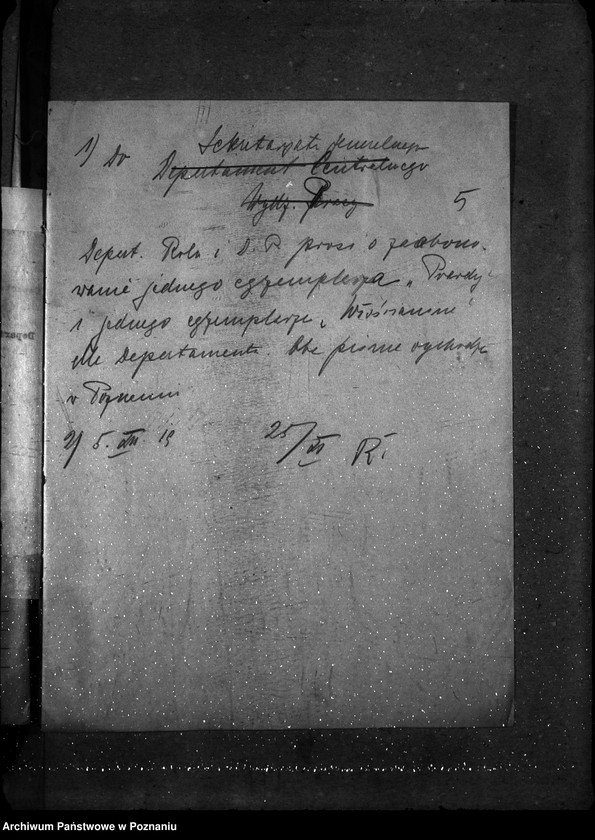 1) Do Sekretarjatu Generalnego
Departament Centralnego
Wydz. Prasy
5
Deput. Rola i D. P. prosi o zaabono-
wanie jednego egzemplarza „Prawdy"
i jednego egzemplarza „Włościanina"
dla Departamentu. Oba pisma wychodzą
w Poznaniu
2) 5. III. 19 25/III R.
Archiwum Państwowe w Poznaniu